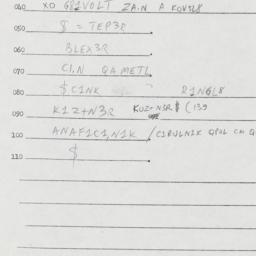 040 XO GR1VOLT ZA.N A KOVSL8
050 $ = TEP3R
060 BLEX3R
070 C1,N QAMETL
080 $ C1NK R1NGL8
090 K1Z+N3R KUZ+N3R $ (139
100 ANAF1C1,N1K / C1RULN1K
110 $